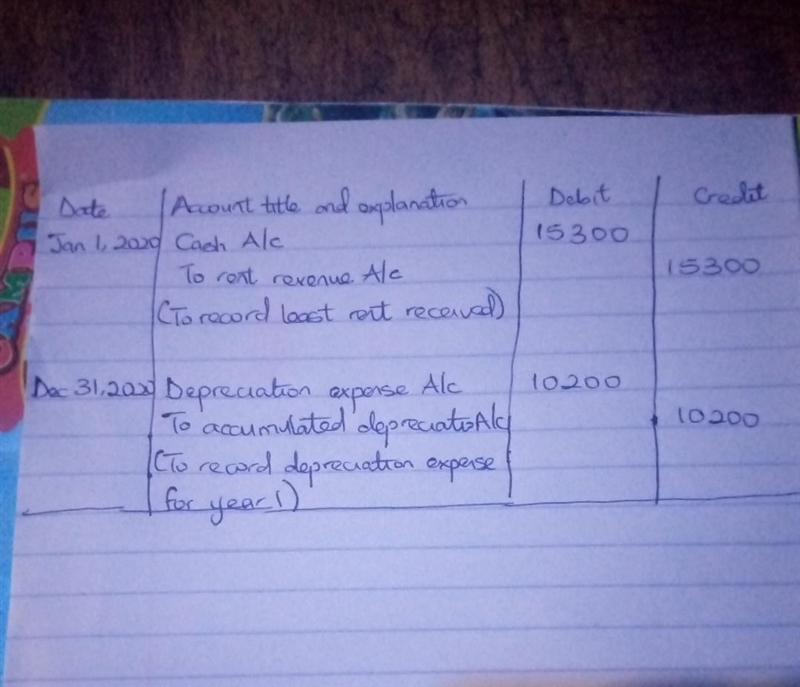 Date Account title and explanation Debit Credit
Jan 1, 2020 Cash A/c 15300
To rent revenue A/c 15300
(To record least rent received)
Dec 31, 2020 Depreciation expense A/c 10200
To accumulated depreciatio A/c 10200
(To record depreciation expense
for year 1)